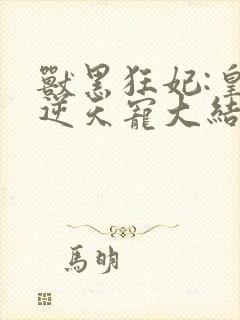 獸黑狂妃:皇
逆天寵大結
馬明